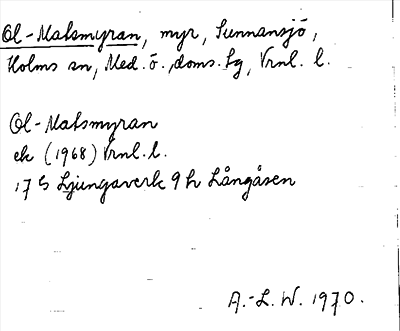 Ol-Matsmyran, myr, Sunnansjö,
Holms sn, Med. ö., doms. lg, Vrnl. l.
Ol-Matsmyran
ek (1968) Vrnl. l.
17 G Ljungaverk 9 h Långåsen
A.-L. W. 1970.